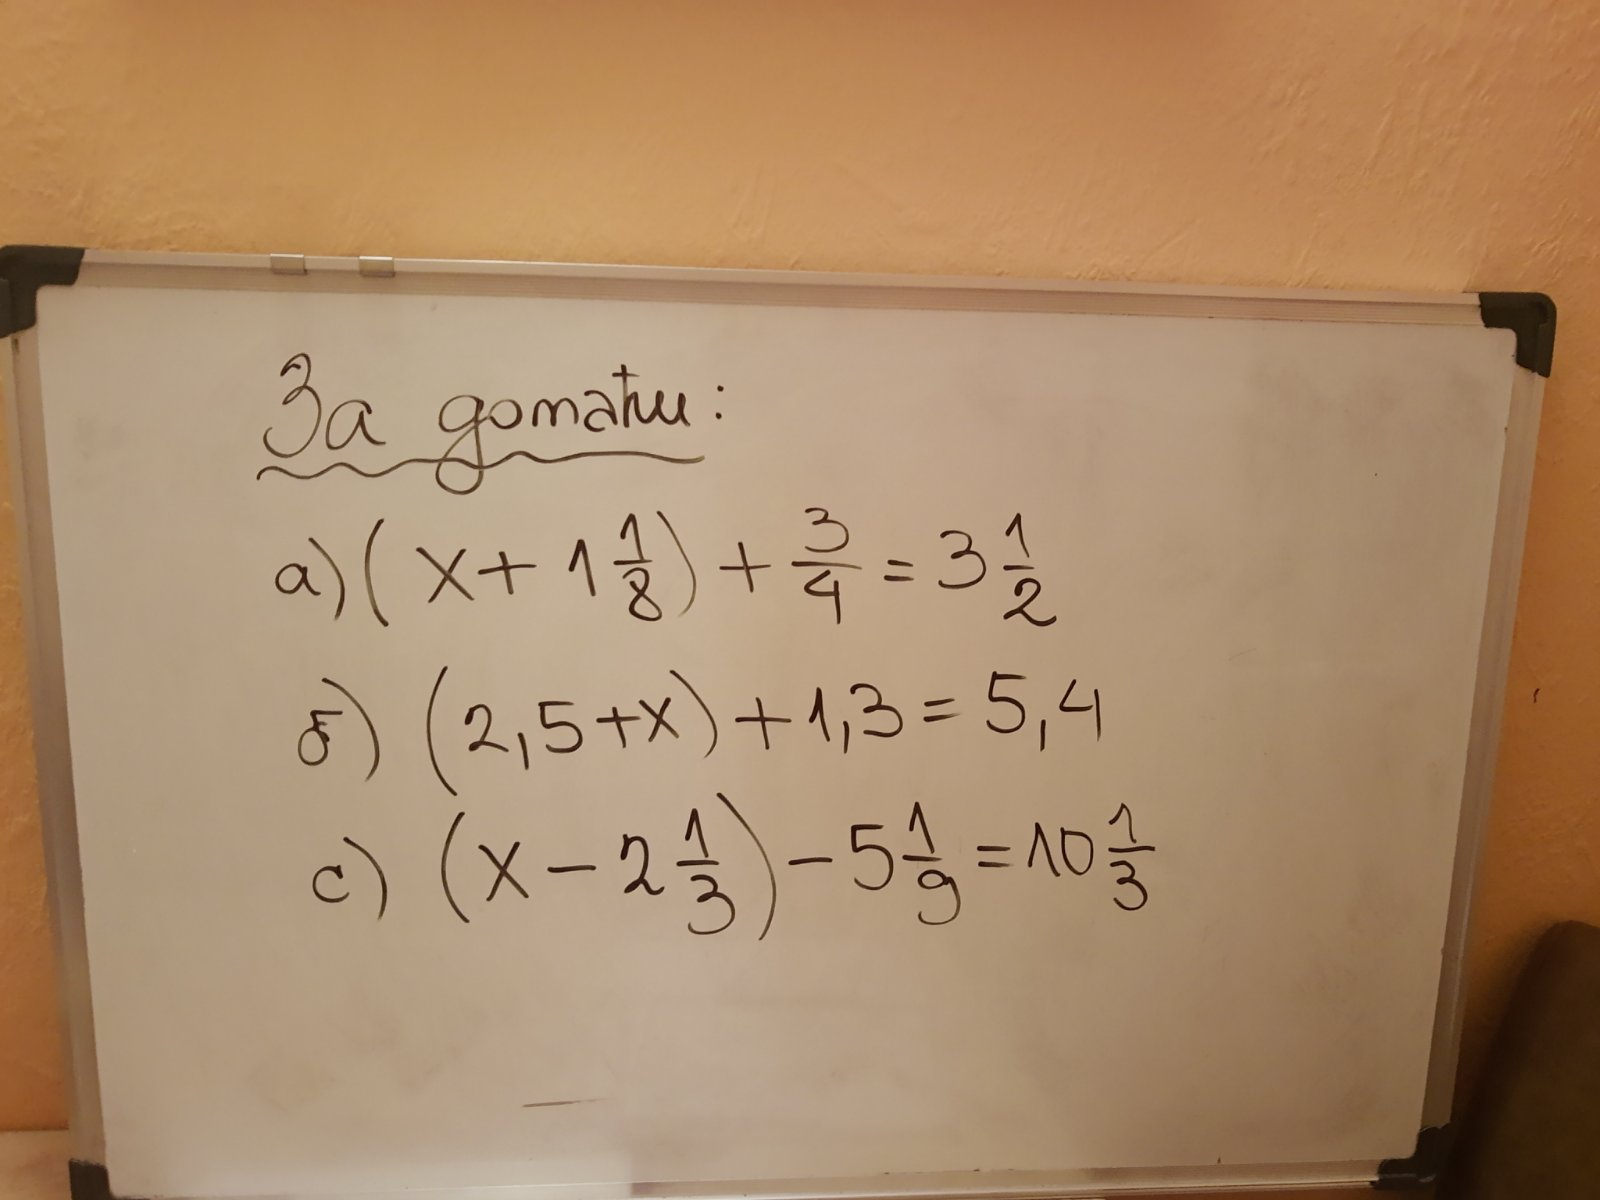 За домаћи:
а) (x + 1 1/8) + 3/4 = 3 1/2
б) (2,5 + x) + 1,3 = 5,4
c) (x - 2 1/3) - 5 1/9 = 10 1/3